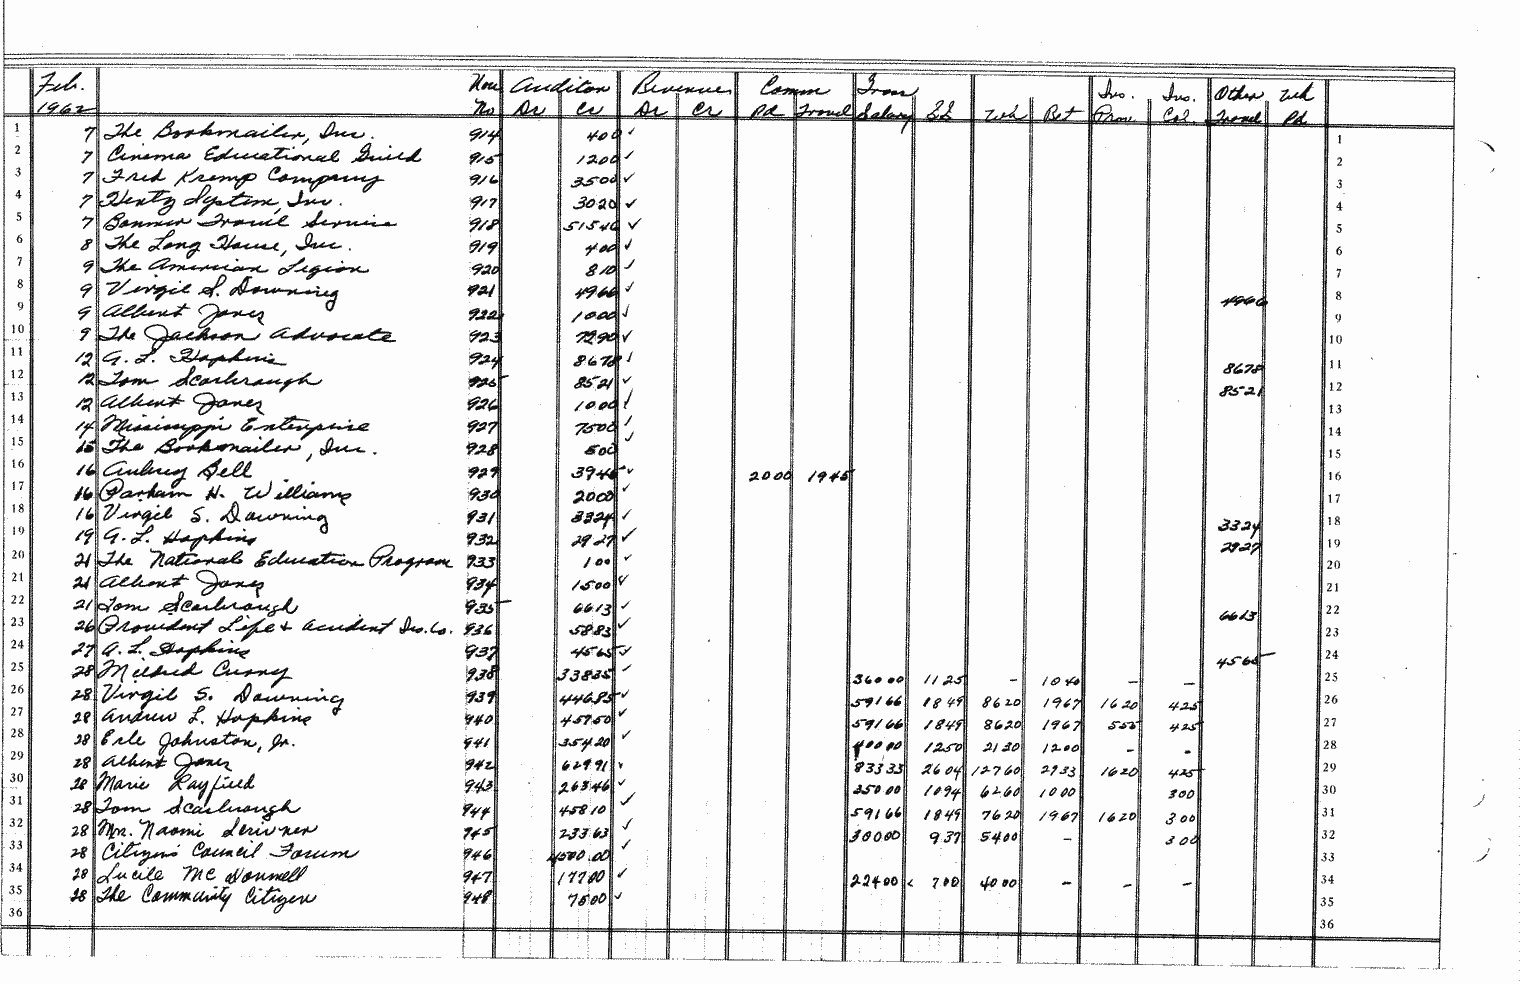 Feb. Auditor Revenue Comm Gross Ins. Ins. Other Wh
1962 No Dr Cr Dr Cr Pd Travel Salary SS Wh Ret Prem Col. Travel Pd
1 7 The Bookmailer, Inc. 914 400 ✓ 1
2 7 Cinema Educational Guild 915 1200 ✓ 2
3 7 Fred Kremp Company 916 3500 ✓ 3
4 7 Hertz System, Inc. 917 3020 ✓ 4
5 7 Travel Service 918 51546 ✓ 5
6 8 The Long House, Inc. 919 400 ✓ 6
7 9 The American Legion 920 810 ✓ 7
8 9 Virgil S. Downing 921 4966 ✓ 4966 8
9 9 Albert Jones 922 1000 ✓ 9
10 9 The Jackson Advocate 923 7290 ✓ 10
11 12 A. L. Hopkins 924 8678 ✓ 8678 11
12 12 Tom Scarbrough 925 8521 ✓ 8521 12
13 12 Albert Jones 926 1000 ✓ 13
14 14 Mississippi Enterprise 927 7500 ✓ 14
15 15 The Bookmailer, Inc. 928 500 ✓ 15
16 16 Aubrey Bell 929 3945 ✓ 2000 1945 16
17 16 Parham H. Williams 930 2000 ✓ 17
18 16 Virgil S. Downing 931 3324 ✓ 3324 18
19 19 A. L. Hopkins 932 2927 ✓ 2927 19
20 21 The National Education Program 933 100 ✓ 20
21 21 Albert Jones 934 1500 ✓ 21
22 21 Tom Scarbrough 935 6613 ✓ 6613 22
23 26 Provident Life & Accident Ins. Co. 936 5883 ✓ 23
24 27 A. L. Hopkins 937 4565 ✓ 4565 24
25 28 Mildred Curry 938 33835 ✓ 36000 1125 - 1040 - - 25
26 28 Virgil S. Downing 939 44685 ✓ 59166 1849 8620 1967 1620 425 26
27 28 Andrew L. Hopkins 940 45750 ✓ 59166 1849 8620 1967 555 425 27
28 28 Erle Johnston, Jr. 941 35420 ✓ 40000 1250 2130 1200 - - 28
29 28 Albert Jones 942 62991 ✓ 83333 2604 12760 2933 1620 425 29
30 28 Marie Rayfield 943 26346 ✓ 35000 1094 6260 1000 300 30
31 28 Tom Scarbrough 944 45810 ✓ 59166 1849 7620 1967 1620 300 31
32 28 Mrs. Naomi Scrivner 945 23363 ✓ 30000 937 5400 - 300 32
33 28 Citizens' Council Forum 946 4500.00 ✓ 33
34 28 Lucile McDonnell 947 17700 ✓ 22400 700 4000 - - - 34
35 28 The Community Citizen 948 7500 ✓ 35
36 36